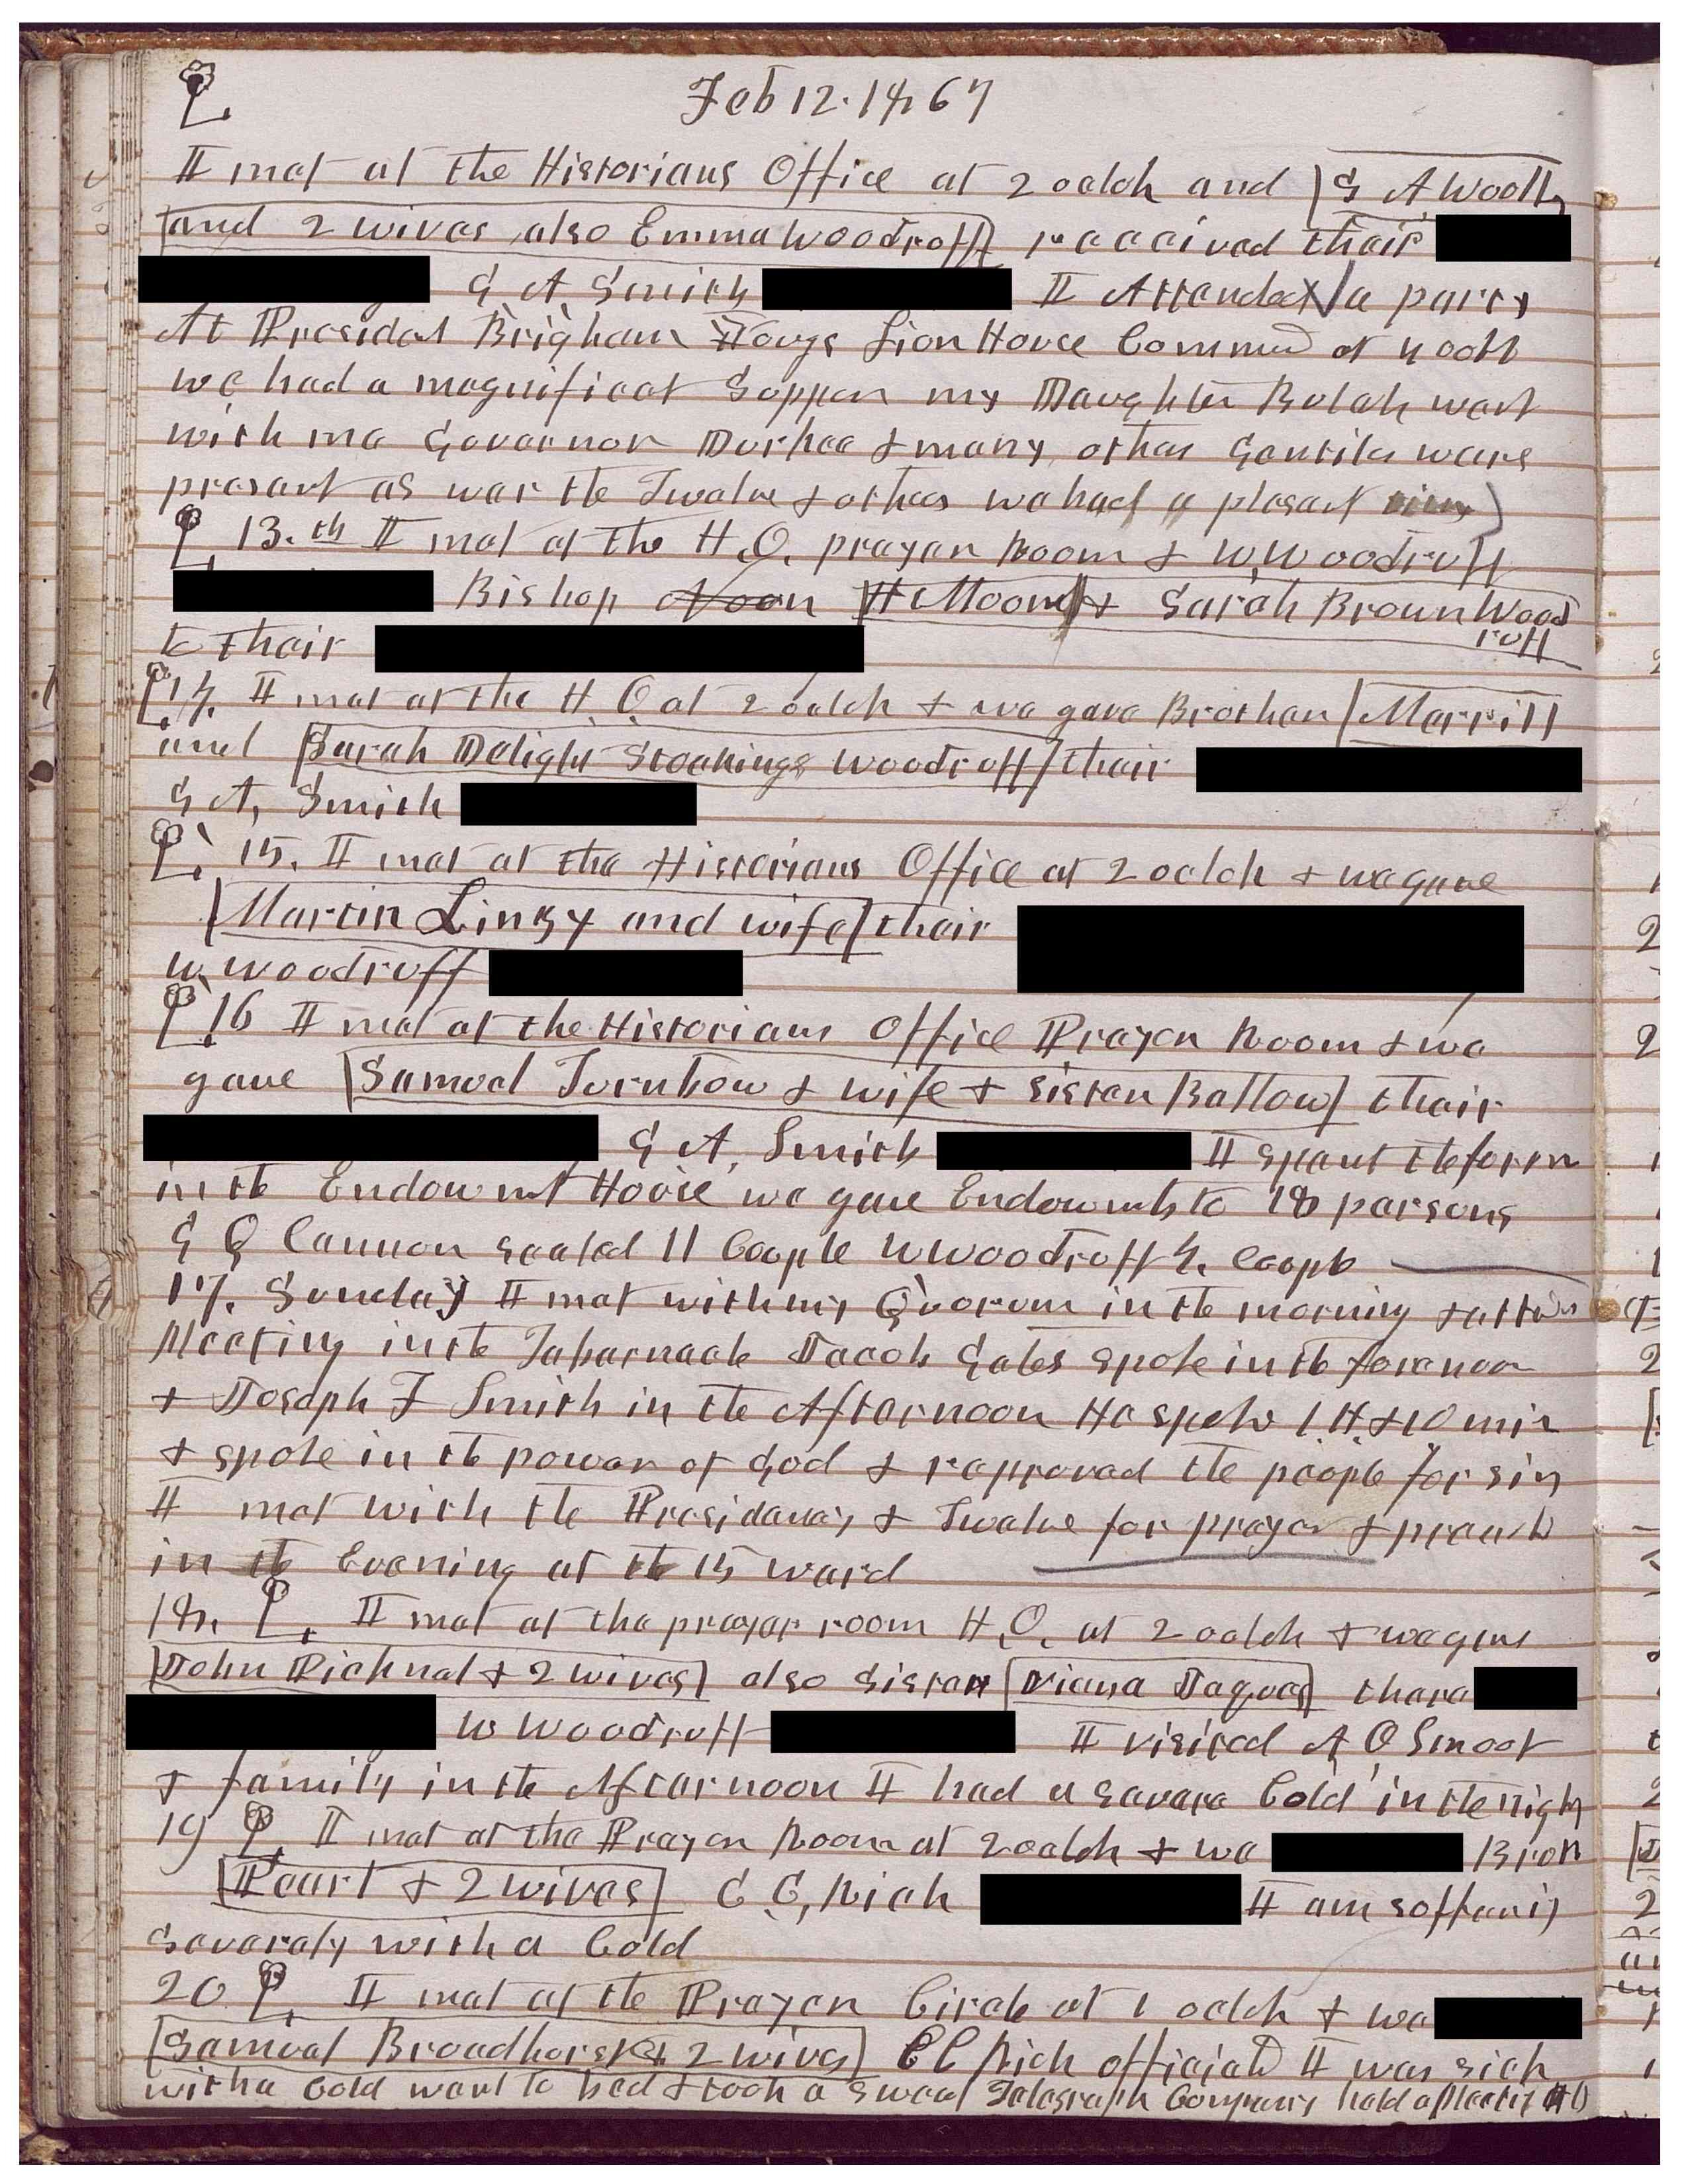 Feb 12. 1867
I met at the Historians Office at 2 oclok and G A Smith
and 2 wives also Emma Woodruff received their
G A Smith I Attended a party
At Presidet Brigham Yougs Lion House Commed at 4 oclk
we had a magnificet Supper my Daughter Bulah went
with me Governor Durkee & many other Gentiles were
presant as war the Twelve & others we had a plesant
13.th I met at the H. O. prayer Room & W. Woodruff
Bishop Moon & Sarah Brown Wood
ruff
to their
14. I met at the H. O. at 2 oclok & we gave Brother Merrill
and Sarah Delight Stockings Woodruff their
G A, Smith
15. I met at the Historians Office at 2 oclok & we gave
Martin Linzy and wife their
W. Woodruff
16 I met at the Historians Office Prayer Room & we
gave Samuel Turnbow & wife & Sister Ballow their
G A, Smith I spent the foren
in the Endowmt House we gave Endowmts to 18 persons
G Q Cannon sealed 11 Couple W Woodruff 4. Coupl
17. Sunday I met with my Quorum in the morning & attd
Meeting in the Tabernacle Jacob Gates spoke in the forenoon
& Joseph F Smith in the Afternoon He spoke 1. H. & 10 min
& spoke in the power of God & reproved the people for sin
I met with the Presidency & Twelve for prayer & preach
in the Evening at the 15 ward
18. I met at the prayer room H. O. at 2 oclok & we gave
John Picknal & 2 wives also Sister Viena Jaques there
W Woodruff I visited A O Smoot
& family in the Afternoon I had a severe Cold in the night
19 I met at the Prayer Room at 2 oclok & we Broth
Peart & 2 wives C C, Rich I am suffering
severely with a Cold
20 I met at the Prayer Circle at 1 oclok & we
Samuel Broadhurst & 2 wives C C Rich officiatd I was sick
with a Cold went to bed & took a sweat Telegraph Company held a Meetig